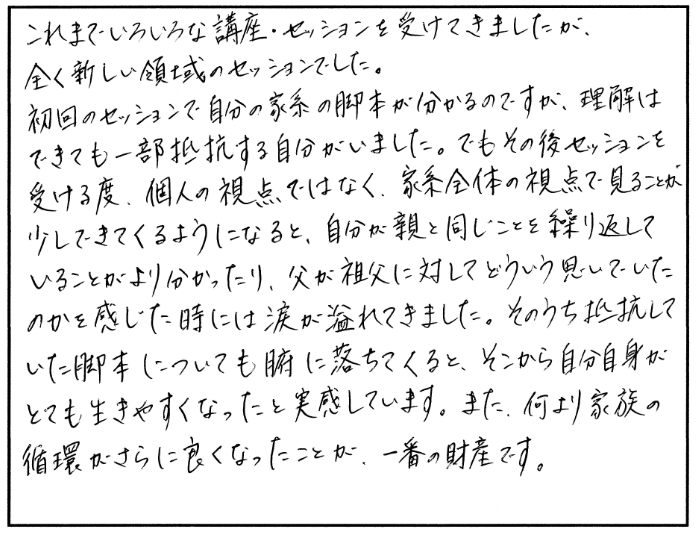 これまでいろいろな講座・セッションを受けてきましたが、
全く新しい領域のセッションでした。
初回のセッションで自分の家系の脚本が分かるのですが、理解は
できても一部抵抗する自分がいました。でもその後セッションを
受ける度、個人の視点ではなく、家系全体の視点で見ることが
少しできてくるようになると、自分が親と同じことを繰り返して
いることがより分かったり、父が祖父に対してどういう思いでいた
のかを感じた時には涙が溢れてきました。そのうち抵抗して
いた脚本についても腑に落ちてくると、そこから自分自身が
とても生きやすくなったと実感しています。また、何より家族の
循環がさらに良くなったことが、一番の財産です。